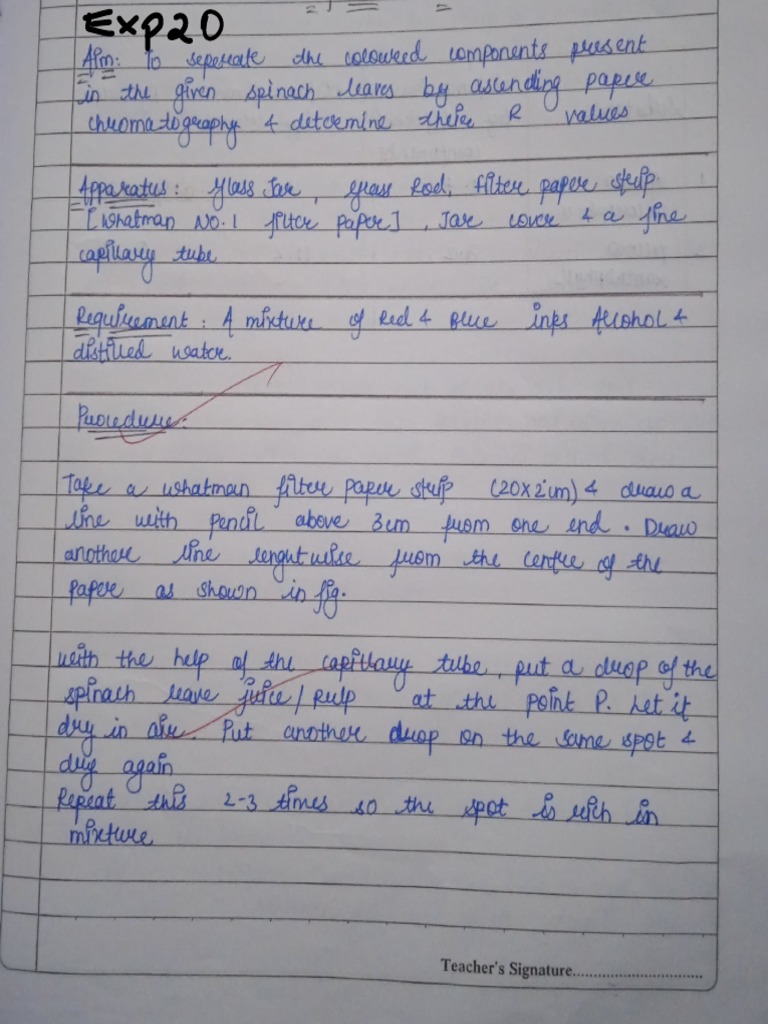 Exp20
Aim: To seperate the coloured components present
in the given spinach leaves by ascending paper
chromatography & determine there R values
Apparatus: Glass Jar, glass Rod, filter paper strip
[Whatman No. 1 filter paper], Jar cover & a fine
capillary tube
Requirement: A mixture of Red & Blue inks Alcohol &
distilled water.
Procedure:
Take a whatman filter paper strip (20x2cm) & draw a
line with pencil above 3cm from one end. Draw
another line lengutwise from the centre of the
paper as shown in fig.
with the help of the capillary tube, put a drop of the
spinach leave juice/pulp at the point P. Let it
dry in air. Put another drop on the same spot &
dry again
Repeat this 2-3 times so the spot is rich in
mixture
Teacher's Signature